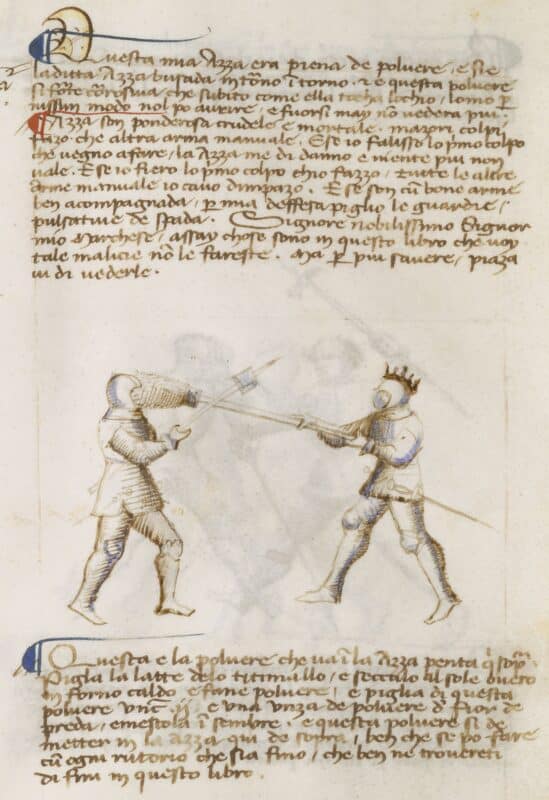 Questa mia Azza era piena de polvere, e si e
la ditta Azza busada intorno i torno. E e questa polvere
si forte corrosiva che subito come ella tocha lochio, lomo p
nissun modo nol po avrire, e fuorsi may no vedera piu.
Azza son ponderosa crudele e mortale. mazori colpi
fazo che altra arma manuale. E se io falisto lo pmo colpo
che vegno a fare, la Azza me di danno e niente piu non
vale. E se io fiero lo pmo colpo chio fazzo, tutte le altre
arme manuale io cavo dimpazo. E se son cu bone arme
ben acompagnada, p mia deffesa piglio le guardie,
pulsative de spada. Signore nobilissimo Signor
mio Marchese, assay chose sono in questo libro che voy
tale malicie no le fareste. Ma p piu savere, piaza
vi di vederle.
Questa e la polvere che va i la Azza penta q
Piglia la latte delo titimallo, e seccalo al sole overo
in forno caldo e fane polvere, e piglia di questa
polvere e una unza de polvere d fior de
preda, e mestola i sembre. e questa polvere si de
metter in la Azza qui de sopra, ben che se po fare
cu ogni rutorio che sia fino, che ben ne trovereti
di fini in questo libro.